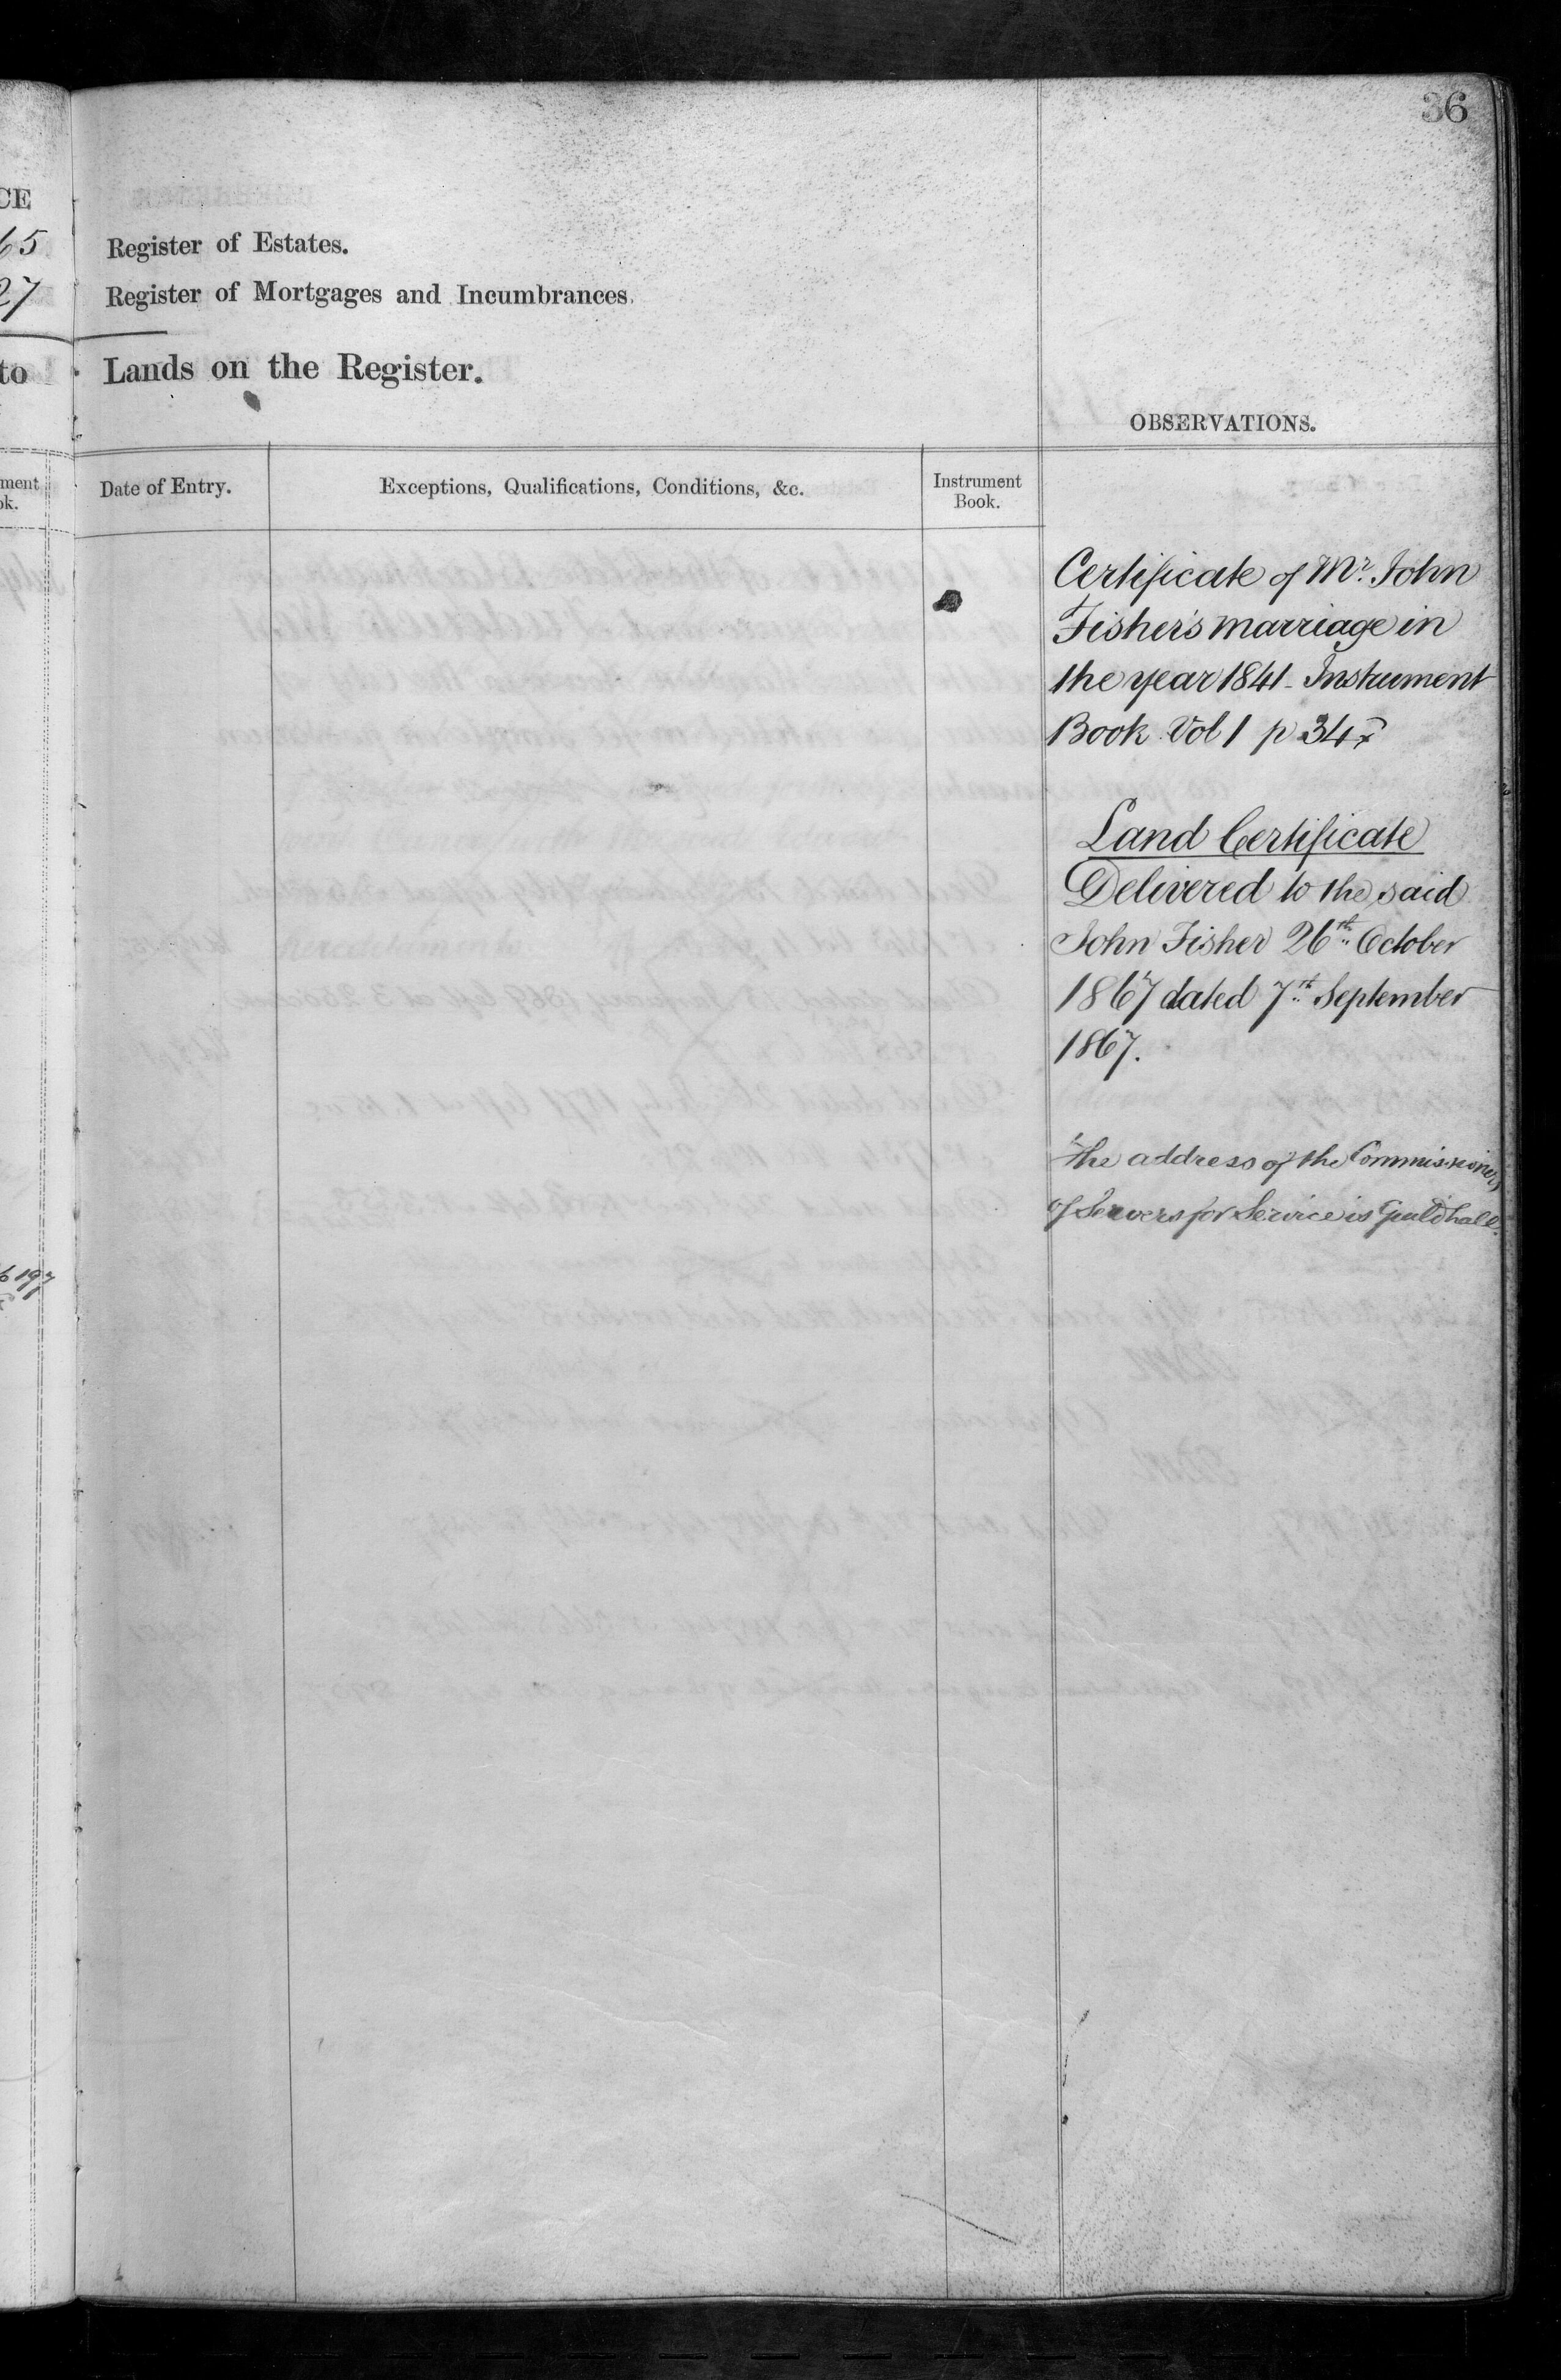 36
CE
65
27
to
ment
ok.
Register of Estates.
Register of Mortgages and Incumbrances.
Lands on the Register.
OBSERVATIONS.
Date of Entry.
Exceptions, Qualifications, Conditions, &c.
Instrument
Book.
Certificate of Mr. John
Fisher's marriage in
the year 1841 - Instrument
Book Vol 1 p 347
Land Certificate
Delivered to the said
John Fisher 26th October
1867 dated 7th September
1867.
The address of the Commissioners
of Sewers for Service is Guildhall.